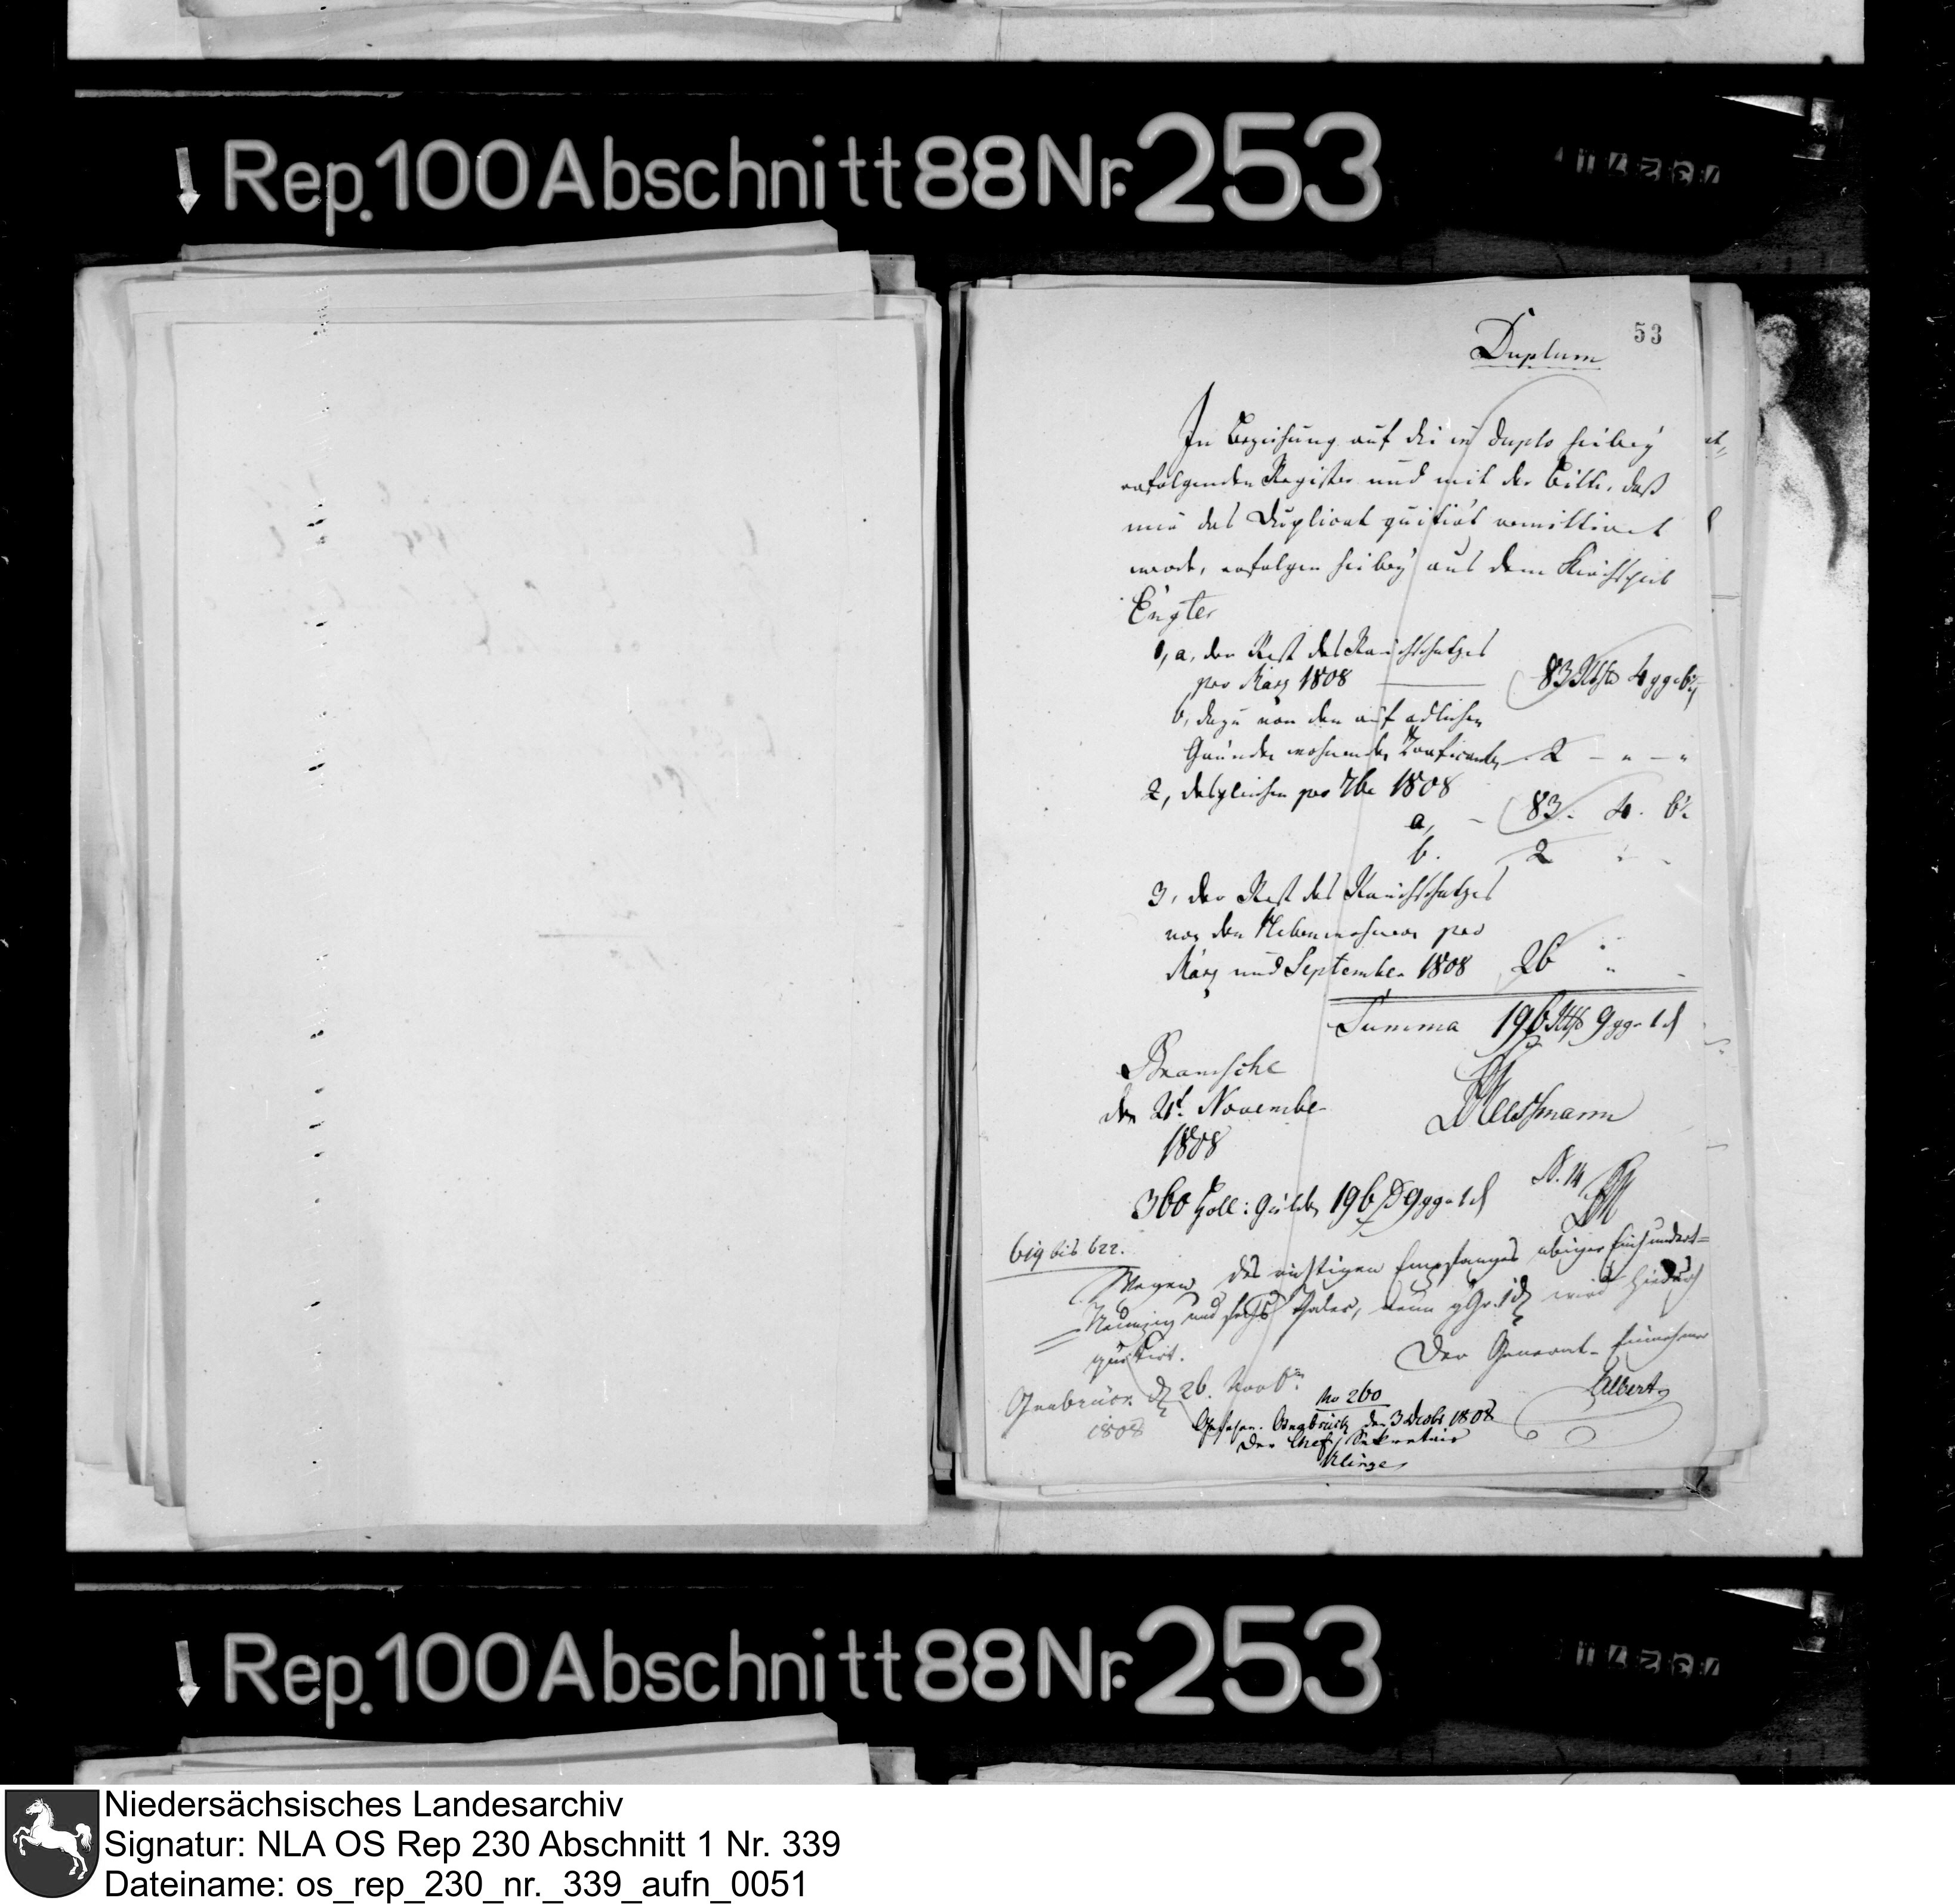 Rep. 100 Abschnitt 88 Nr. 253
53
Duplum
In Beziehung auf die in duplo hiebey
erfolgenden Register und mit der Bitte, daß
mir das Duplicat quitirt remittiret
werde, erfolgen hiebey aus dem Kirchspiel
Engter
1, a, der Rest des Rauchschatzes
pro März 1808 — 83 Rthlr 4 ggr 6½
b, dazu von den auf adlichen
Gründen wohnenden 2 - " - "
2, desgleichen pro 7br 1808
a, - 83. 4. 6½
b. 2
3, der Rest des Rauchschatzes
von den Nebenwohnern pro
März und September 1808 26 " "
Summa 196 Rthlr 9 ggr 1 d
Bramsche
den 21t. November
1808
360 Holl: Gulden 196 9 ggr 1 d
N. 14
619 bis 622.
Wegen des richtigen Empfanges obiger Einhundert=
Neunzig und sechs Thaler, neun gGr. 1 d wird hiedurch
quitirt.
Der General-Einnehmer
Osnabrück d 26. Novbr
1808
Albert
No 260
Gesehen. Osnabrück den 3 Decbr 1808
Der Chef Sekretair
Klinge
Rep. 100 Abschnitt 88 Nr. 253
Niedersächsisches Landesarchiv
Signatur: NLA OS Rep 230 Abschnitt 1 Nr. 339
Dateiname: os_rep_230_nr._339_aufn_0051